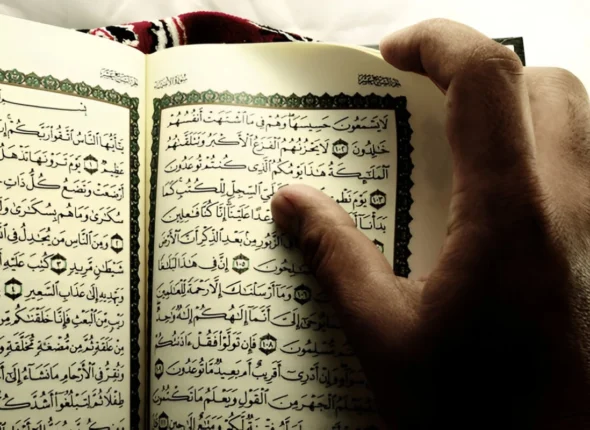 سُورَةُ الْأَنْبِيَاءِ
لَا يَسْمَعُونَ حَسِيسَهَا وَهُمْ فِي مَا اشْتَهَتْ أَنفُسُهُمْ
خَٰلِدُونَ ١٠٢ لَا يَحْزُنُهُمُ الْفَزَعُ الْأَكْبَرُ وَتَتَلَقَّىٰهُمُ
الْمَلَٰٓئِكَةُ هَٰذَا يَوْمُكُمُ الَّذِي كُنتُمْ تُوعَدُونَ
١٠٣ يَوْمَ السِّجِلِّ لِلْكُتُبِ كَمَا
بَدَأْنَا عَلَيْنَا إِنَّا كُنَّا فَٰعِلِينَ
الزَّبُورِ مِن بَعْدِ الذِّكْرِ أَنَّ الْأَرْضَ
١٠٥ إِنَّ فِي هَٰذَا لَبَلَٰغًا
وَمَا أَرْسَلْنَٰكَ إِلَّا رَحْمَةً لِّلْعَٰلَمِينَ
إِلَيَّ أَنَّمَا إِلَٰهُكُمْ إِلَٰهٌ وَٰحِدٌ
مُّسْلِمُونَ ١٠٨ فَإِن تَوَلَّوْا فَقُلْ ءَاذَنتُكُمْ
وَإِنْ أَدْرِي أَقَرِيبٌ أَم بَعِيدٌ مَّا تُوعَدُونَ
الْجَهْرَ مِنَ الْقَوْلِ وَيَعْلَمُ مَا تَكْتُمُونَ
لَّكُمْ وَمَتَٰعٌ إِلَىٰ حِينٍ
يَٰٓأَيُّهَا النَّاسُ اتَّقُوا رَبَّكُمْ
عَظِيمٌ ١ يَوْمَ تَرَوْنَهَا تَذْهَلُ
أَرْضَعَتْ وَتَضَعُ كُلُّ ذَاتِ
سُكَٰرَىٰ وَمَا هُم بِسُكَٰرَىٰ
٢ وَمِنَ النَّاسِ مَن يُجَٰدِلُ فِي
شَيْطَٰنٍ مَّرِيدٍ ٣ كُتِبَ عَلَيْهِ
وَيَهْدِيهِ إِلَىٰ عَذَابِ السَّعِيرِ ٤
رَيْبٍ مِّنَ الْبَعْثِ فَإِنَّا خَلَقْنَٰكُم
مِنْ عَلَقَةٍ ثُمَّ مِن مُّضْغَةٍ مُّخَلَّقَةٍ
وَنُقِرُّ فِي الْأَرْحَامِ مَا نَشَاءُ إِلَىٰ
طِفْلًا ثُمَّ لِتَبْلُغُوا أَشُدَّكُمْ